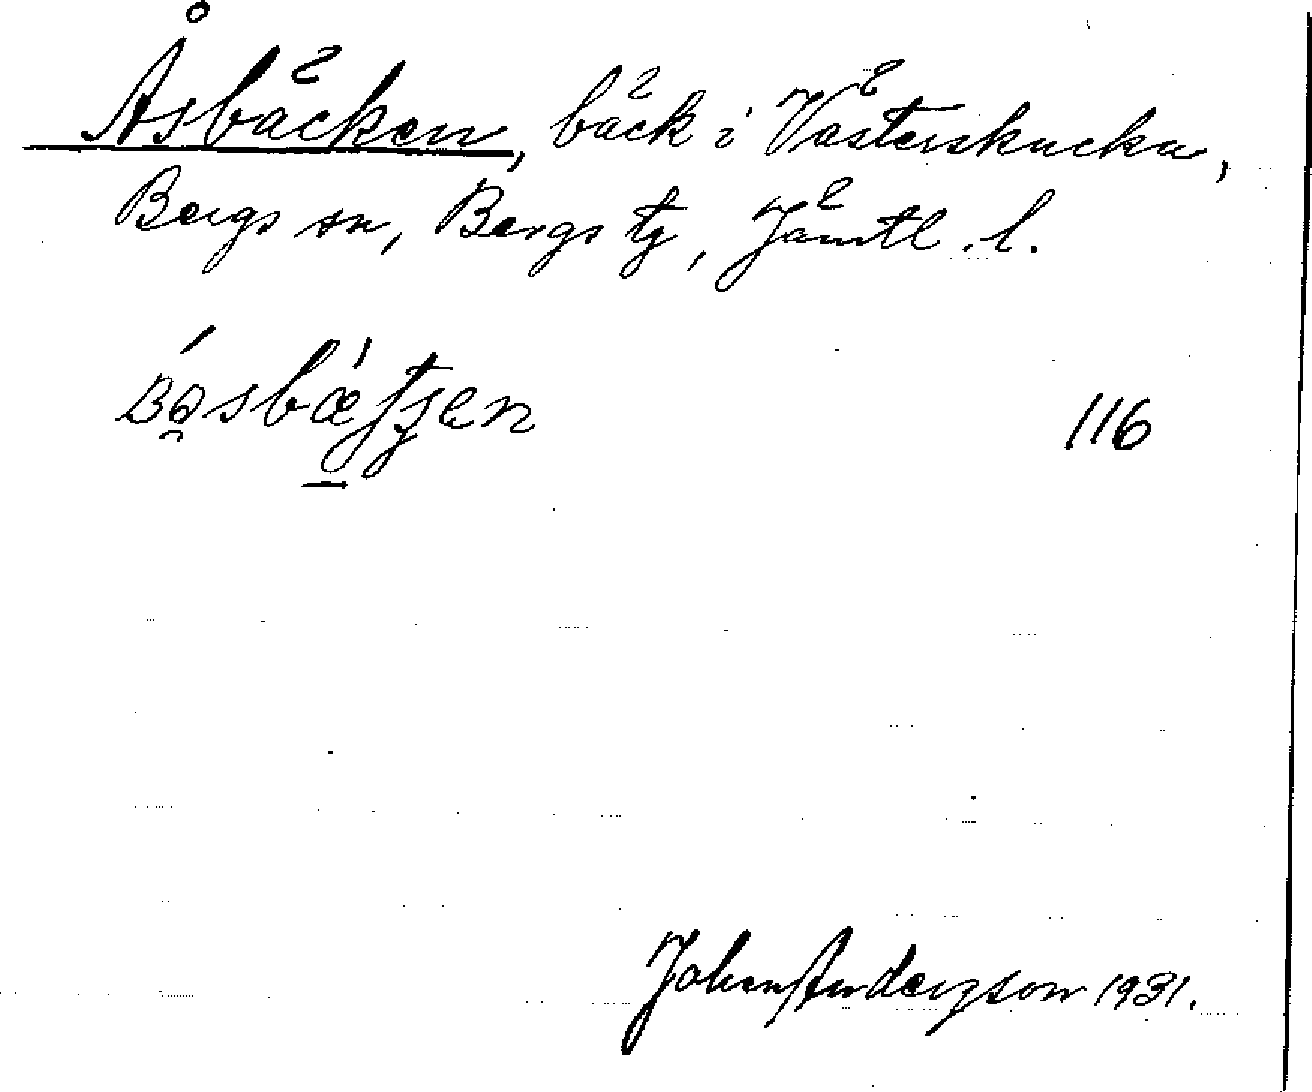 Åsbäcken, bäck i Västerskucku,
Bergs sn, Bergs tg, Jämtl. l.
116
Johan Anderzson 1931.